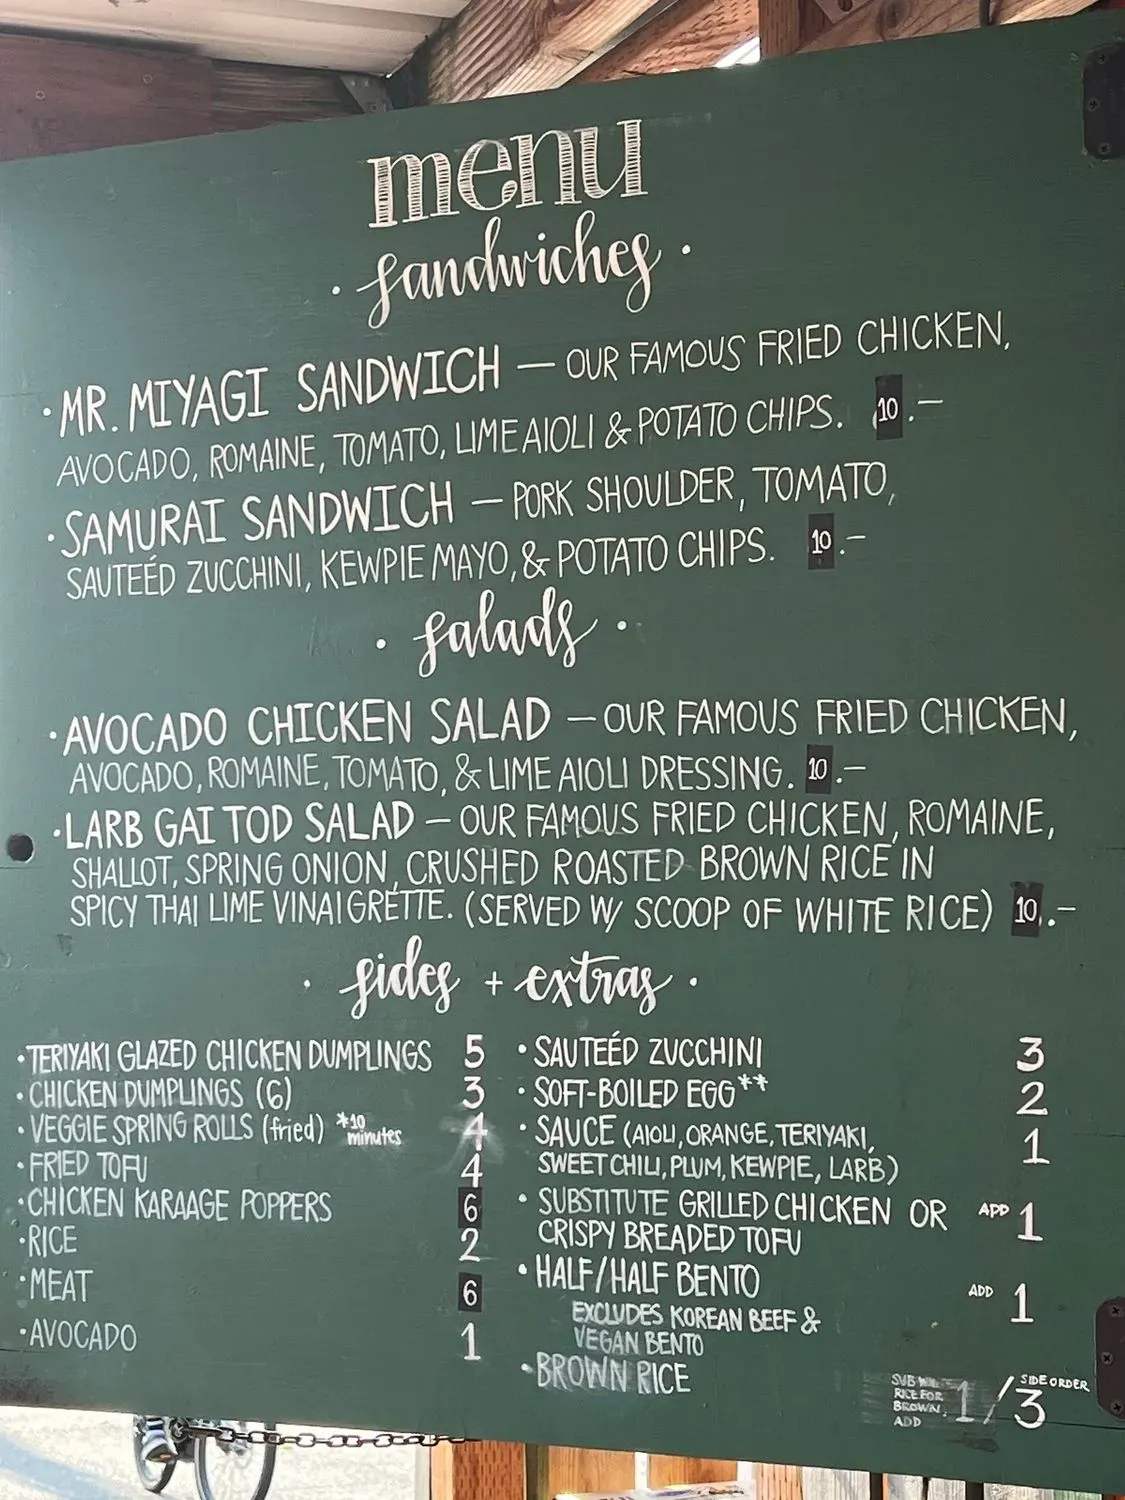 menu
· sandwiches ·
· MR. MIYAGI SANDWICH — OUR FAMOUS FRIED CHICKEN,
AVOCADO, ROMAINE, TOMATO, LIME AIOLI & POTATO CHIPS. 10.—
· SAMURAI SANDWICH — PORK SHOULDER, TOMATO,
SAUTEÉD ZUCCHINI, KEWPIE MAYO, & POTATO CHIPS. 10.—
· salads ·
· AVOCADO CHICKEN SALAD — OUR FAMOUS FRIED CHICKEN,
AVOCADO, ROMAINE, TOMATO, & LIME AIOLI DRESSING. 10.—
· LARB GAI TOD SALAD — OUR FAMOUS FRIED CHICKEN, ROMAINE,
SHALLOT, SPRING ONION, CRUSHED ROASTED BROWN RICE IN
SPICY THAI LIME VINAIGRETTE. (SERVED W/ SCOOP OF WHITE RICE) 10.—
· sides + extras ·
· TERIYAKI GLAZED CHICKEN DUMPLINGS 5
· CHICKEN DUMPLINGS (6) 3
· VEGGIE SPRING ROLLS (fried) *10 minutes 4
· FRIED TOFU 4
· CHICKEN KARAAGE POPPERS 6
· RICE 2
· MEAT 6
· AVOCADO 1
· SAUTEÉD ZUCCHINI 3
· SOFT-BOILED EGG** 2
· SAUCE (AIOLI, ORANGE, TERIYAKI, 1
SWEET CHILI, PLUM, KEWPIE, LARB)
· SUBSTITUTE GRILLED CHICKEN OR ADD 1
CRISPY BREADED TOFU
· HALF/HALF BENTO ADD 1
EXCLUDES KOREAN BEEF &
VEGAN BENTO
· BROWN RICE
SUB
RICE FOR
BROWN.
ADD
1/3 SIDE ORDER